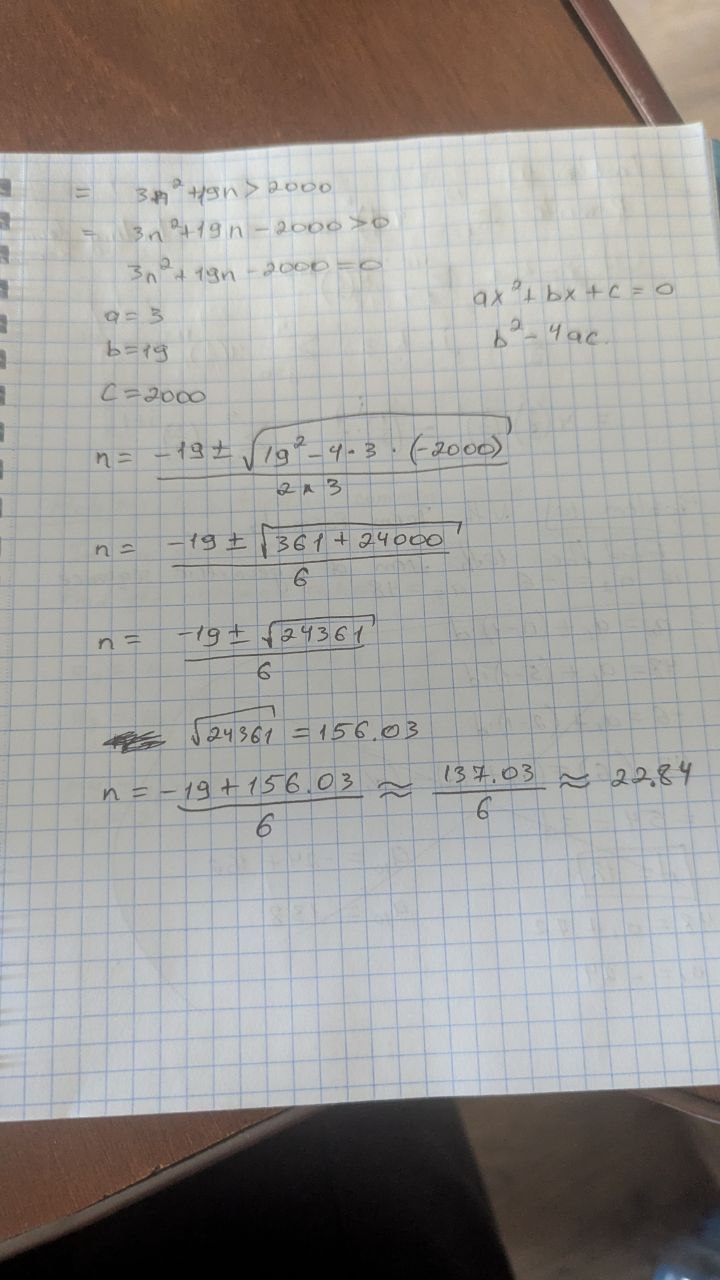 = 3n² + 19n > 2000
= 3n² + 19n - 2000 > 0
3n² + 19n - 2000 = 0
ax² + bx + c = 0
a = 3
b² - 4ac.
b = 19
c = 2000
n = (-19 ± √(19² - 4 · 3 · (-2000))) / (2 × 3)
n = (-19 ± √(361 + 24000)) / 6
n = (-19 ± √24361) / 6
√24361 = 156.03
n = (-19 + 156.03) / 6 ≈ 137.03 / 6 ≈ 22.84